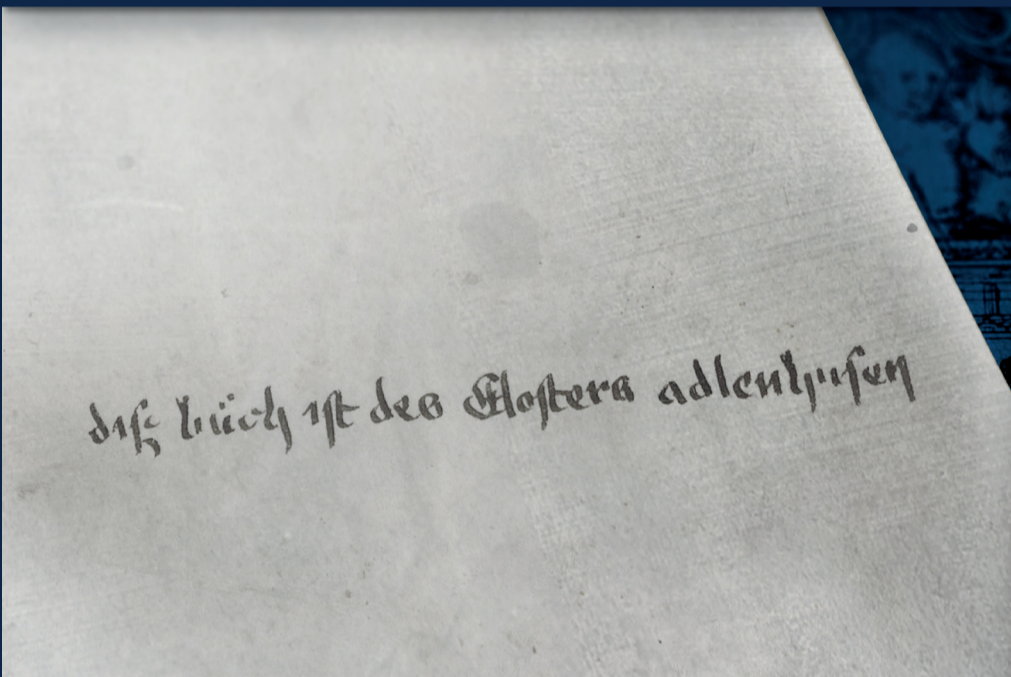 diß büch ist des Closters adlenhusen